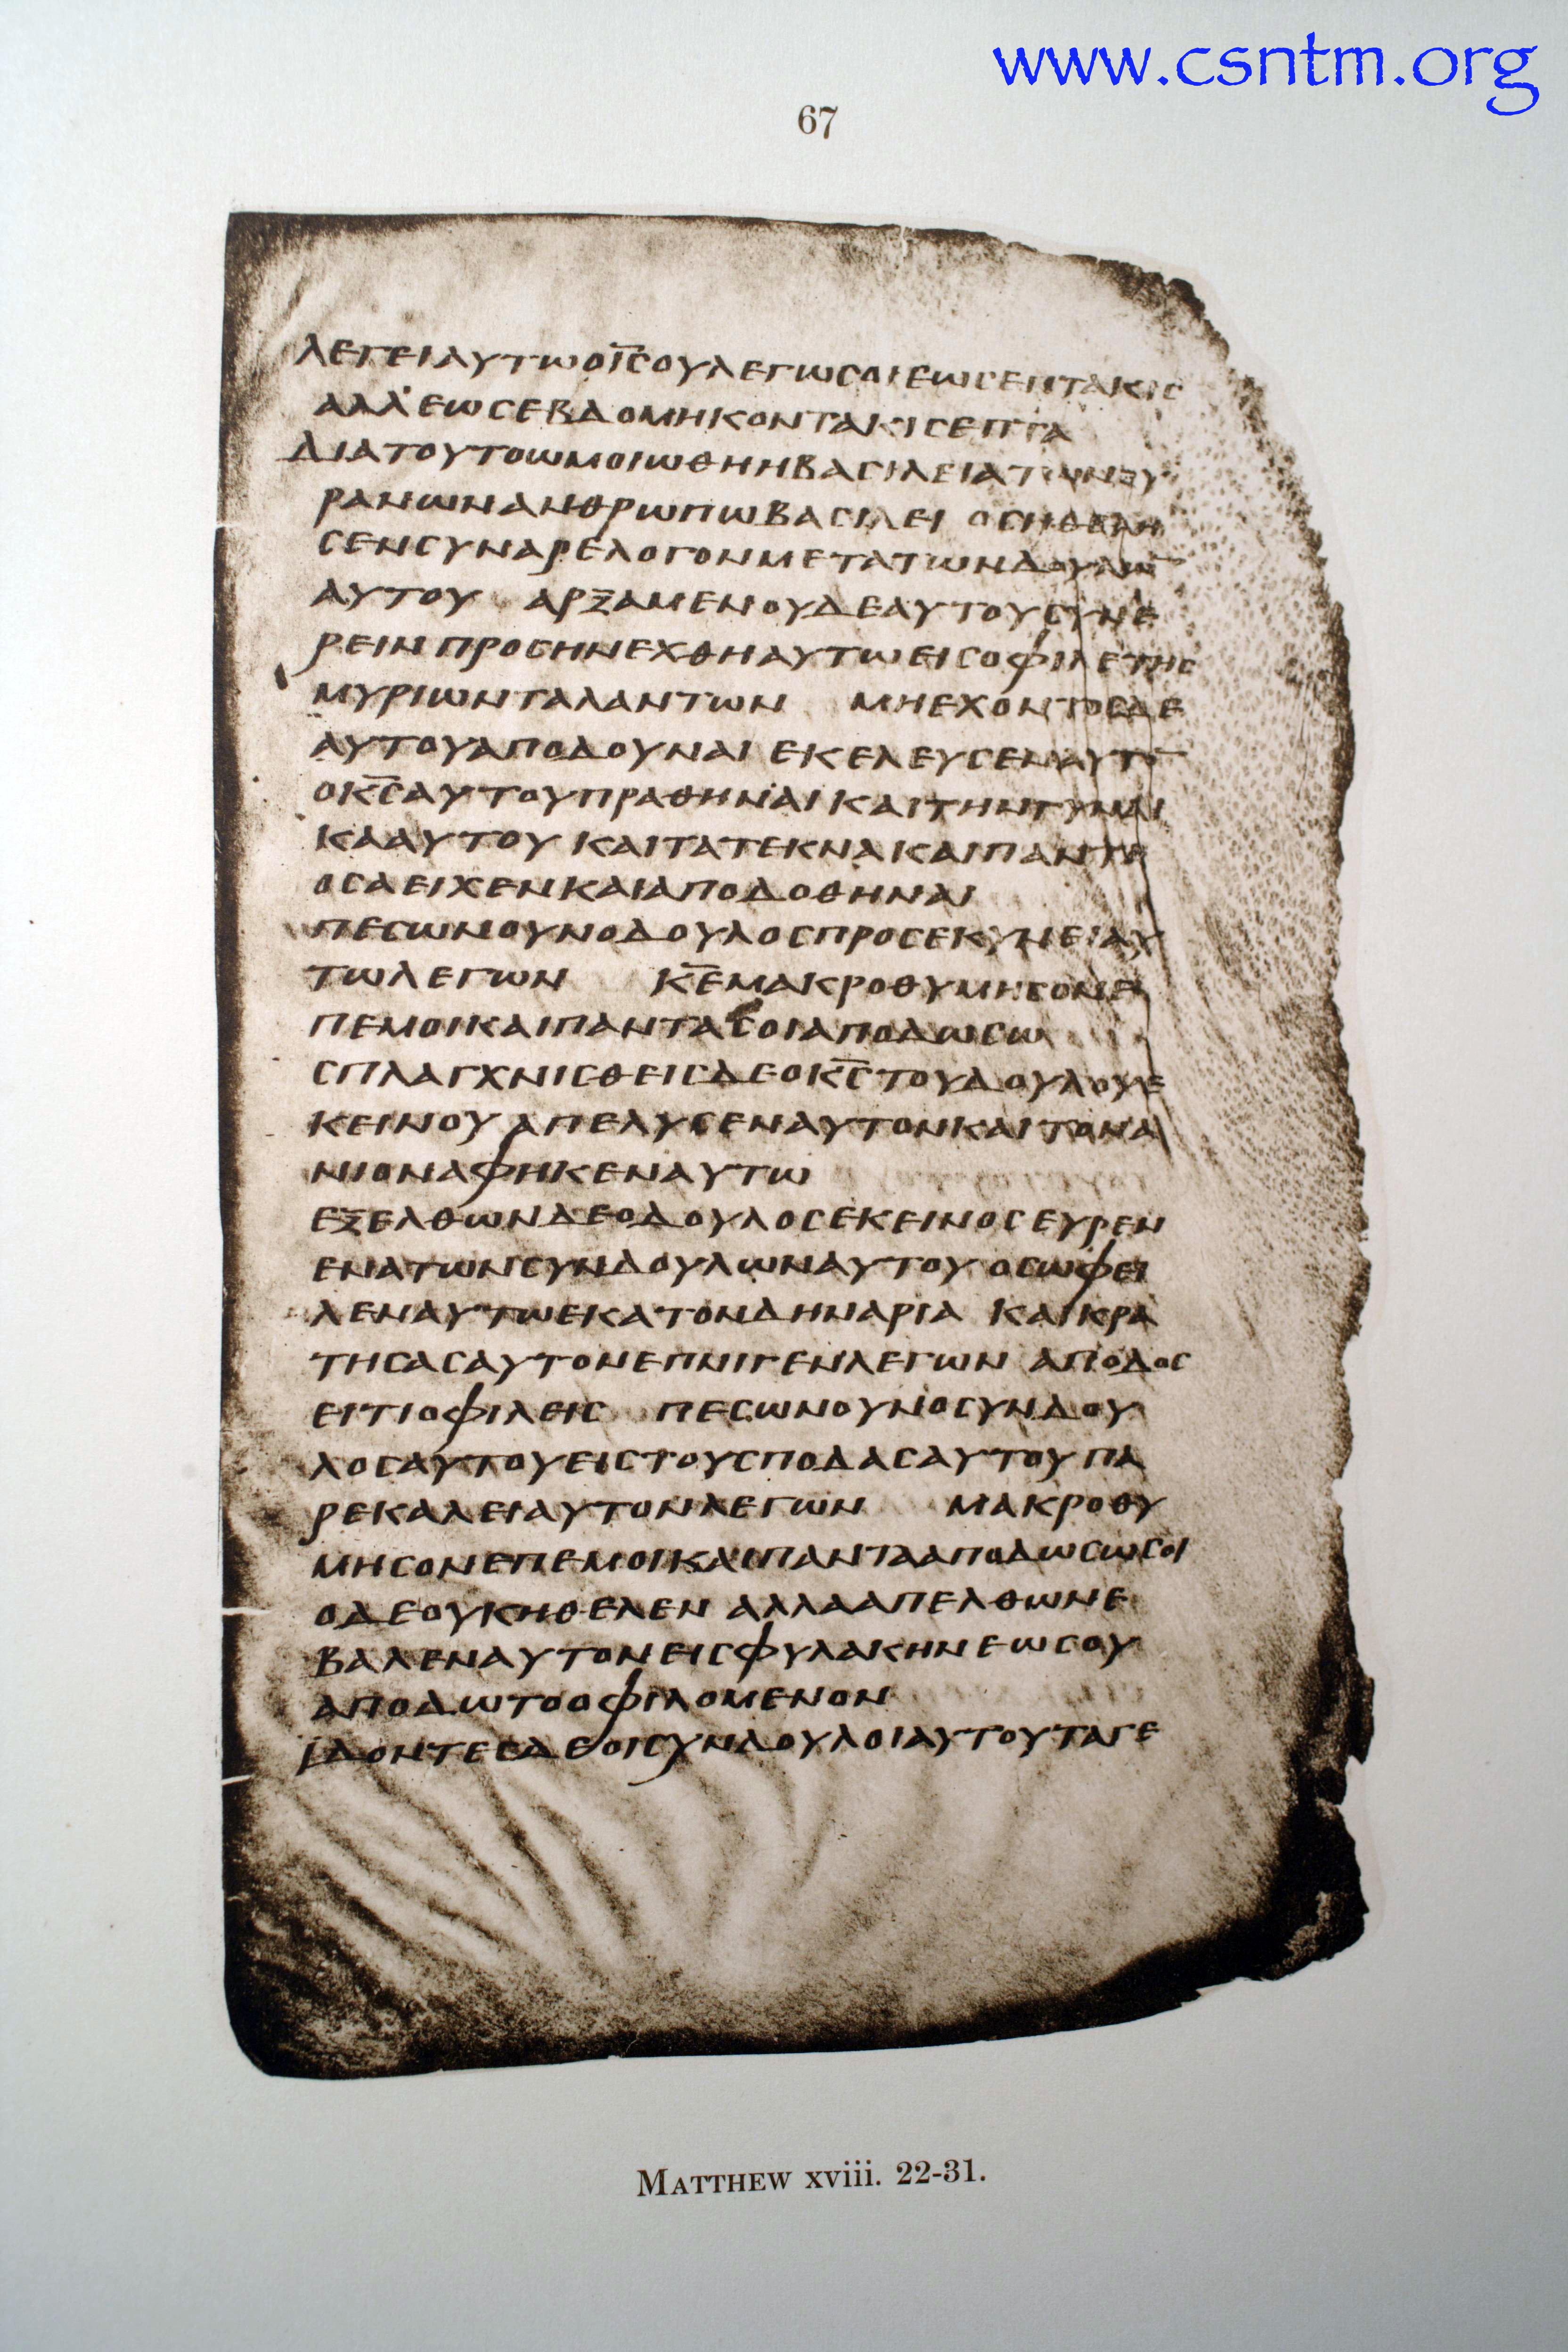 www.csntm.org
67
ΛΕΓΕΙΑΥΤΩΟΙ̅Σ̅ΟΥΛΕΓΩΣΟΙΕΩΣΕΠΤΑΚΙΣ
ΑΛΛ'ΕΩΣΕΒΔΟΜΗΚΟΝΤΑΚΙΣΕΠΤΑ
ΔΙΑΤΟΥΤΟΩΜΟΙΩΘΗΗΒΑΣΙΛΕΙΑΤΩΝΟΥ
ΡΑΝΩΝΑΝΘΡΩΠΩΒΑΣΙΛΕΙ ΟΣΗΘΕΛΗ
ΣΕΝΣΥΝΑΡΕΛΟΓΟΝΜΕΤΑΤΩΝΔΟΥΛΩ̅
ΑΥΤΟΥ ΑΡΞΑΜΕΝΟΥΔΕΑΥΤΟΥΣΥΝΕ
ΡΕΙΝΠΡΟΣΗΝΕΧΘΗΑΥΤΩΕΙΣΟΦΙΛΕΤΗΣ
ΜΥΡΙΩΝΤΑΛΑΝΤΩΝ ΜΗΕΧΟΝΤΟΣΔΕ
ΑΥΤΟΥΑΠΟΔΟΥΝΑΙ ΕΚΕΛΕΥΣΕΝΑΥΤΟ̅
ΟΚ̅Σ̅ΑΥΤΟΥΠΡΑΘΗΝΑΙΚΑΙΤΗΝΓΥΝΑΙ
ΚΑΑΥΤΟΥ ΚΑΙΤΑΤΕΚΝΑΚΑΙΠΑΝΤΑ
ΟΣΑΕΙΧΕΝΚΑΙΑΠΟΔΟΘΗΝΑΙ
ΠΕΣΩΝΟΥΝΟΔΟΥΛΟΣΠΡΟΣΕΚΥΝΕΙΑΥ
ΤΩΛΕΓΩΝ Κ̅Ε̅ΜΑΚΡΟΘΥΜΗΣΟΝΕ
ΠΕΜΟΙΚΑΙΠΑΝΤΑΣΟΙΑΠΟΔΩΣΩ
ΣΠΛΑΓΧΝΙΣΘΕΙΣΔΕΟΚ̅Σ̅ΤΟΥΔΟΥΛΟΥΕ
ΚΕΙΝΟΥ ΑΠΕΛΥΣΕΝΑΥΤΟΝΚΑΙΤΟΔΑ
ΝΙΟΝΑΦΗΚΕΝΑΥΤΩ
ΕΞΕΛΘΩΝΔΕΟΔΟΥΛΟΣΕΚΕΙΝΟΣΕΥΡΕΝ
ΕΝΑΤΩΝΣΥΝΔΟΥΛΩΝΑΥΤΟΥ ΟΣΩΦΕΙ
ΛΕΝΑΥΤΩΕΚΑΤΟΝΔΗΝΑΡΙΑ ΚΑΙΚΡΑ
ΤΗΣΑΣΑΥΤΟΝΕΠΝΙΓΕΝΛΕΓΩΝ ΑΠΟΔΟΣ
ΕΙΤΙΟΦΙΛΕΙΣ ΠΕΣΩΝΟΥΝΟΣΥΝΔΟΥ
ΛΟΣΑΥΤΟΥΕΙΣΤΟΥΣΠΟΔΑΣΑΥΤΟΥΠΑ
ΡΕΚΑΛΕΙΑΥΤΟΝΛΕΓΩΝ ΜΑΚΡΟΘΥ
ΜΗΣΟΝΕΠΕΜΟΙΚΑΙΠΑΝΤΑΑΠΟΔΩΣΩΣΟΙ
ΟΔΕΟΥΚΗΘΕΛΕΝ ΑΛΛΑΑΠΕΛΘΩΝΕ
ΒΑΛΕΝΑΥΤΟΝΕΙΣΦΥΛΑΚΗΝΕΩΣΟΥ
ΑΠΟΔΩΤΟΟΦΙΛΟΜΕΝΟΝ
ΙΔΟΝΤΕΣΔΕΟΙΣΥΝΔΟΥΛΟΙΑΥΤΟΥΤΑΓΕ
MATTHEW xviii. 22-31.